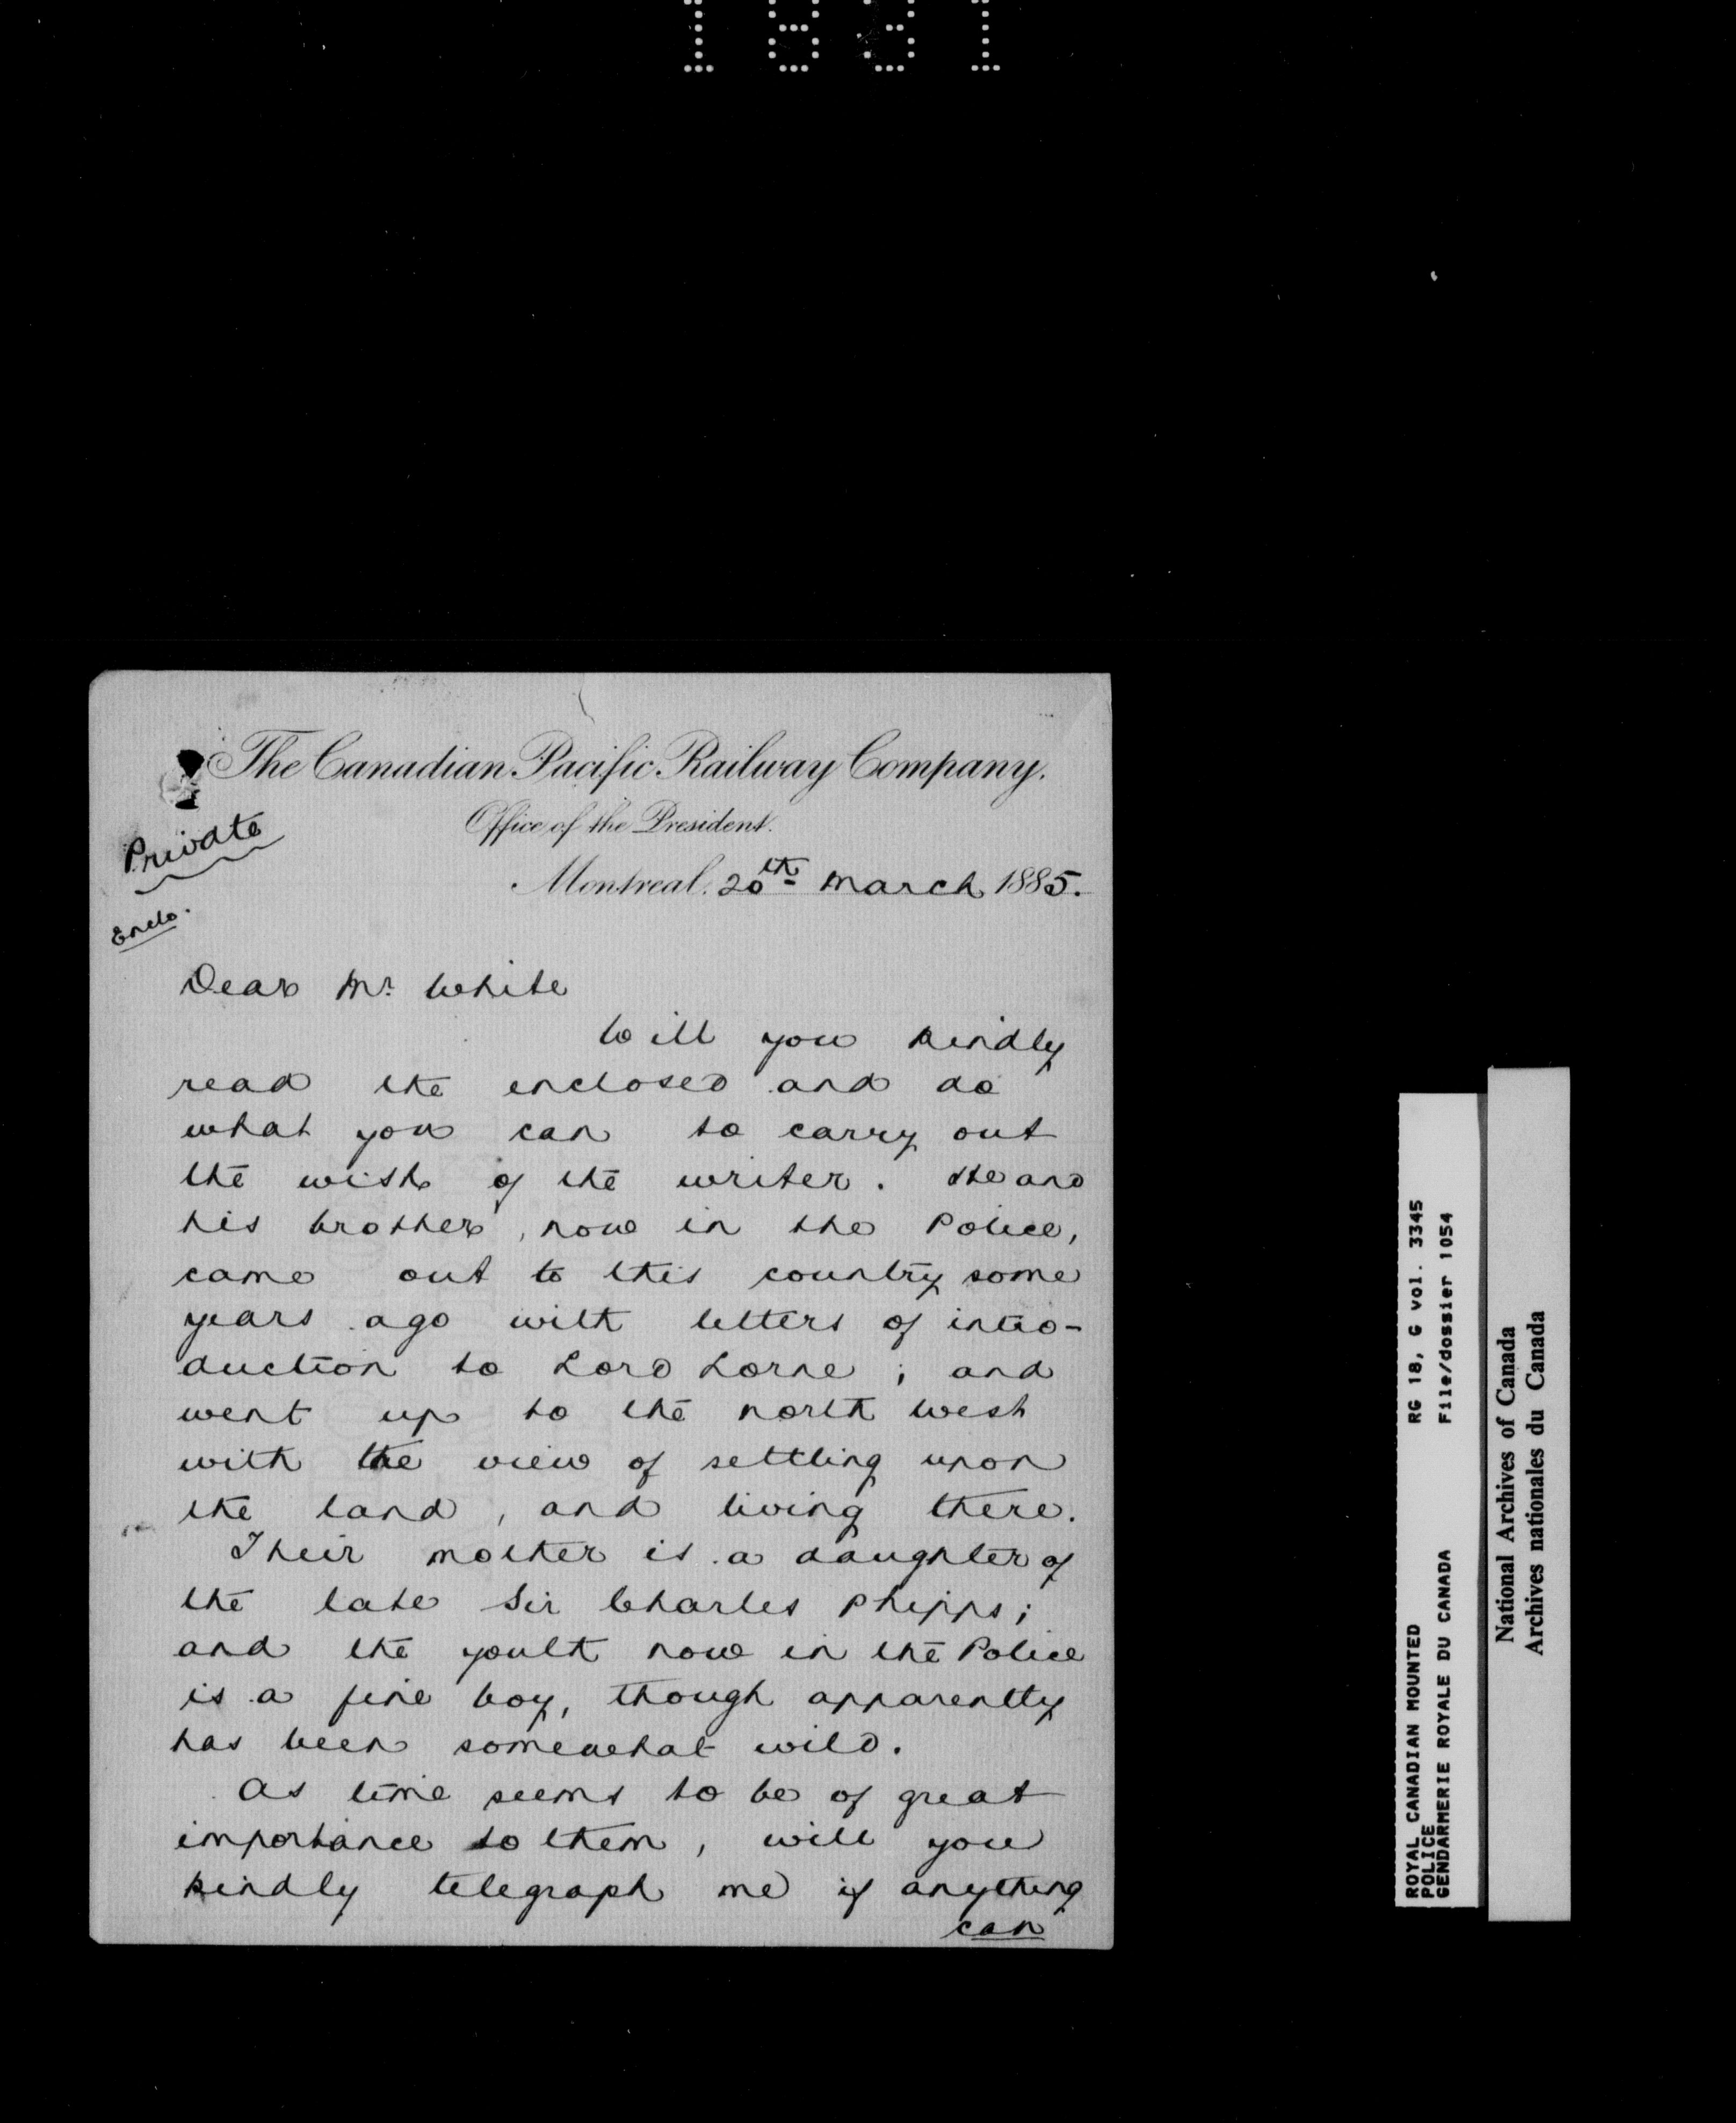 1881
The Canadian Pacific Railway Company.
Office of the President.
Private
Montreal. 20th March 1885.
Enclo.
Dear Mr. White
Will you kindly
read the enclosed and do
what you can to carry out
the wish of the writer. He and
his brother, now in the Police,
came out to this country some
years ago with letters of intro-
duction to Lord Lorne; and
went up to the North West
with the view of settling upon
the land, and living there.
Their mother is a daughter of
the late Sir Charles Phipps;
and the youth now in the Police
is a fine boy, though apparently
has been somewhat wild.
As time seems to be of great
importance to them, will you
kindly telegraph me if anything
can
ROYAL CANADIAN MOUNTED RG 18, G vol. 3345
POLICE
GENDARMERIE ROYALE DU CANADA File/dossier 1054
National Archives of Canada
Archives nationales du Canada